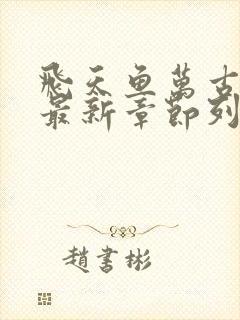 飛天魚萬古
最新章節列
趙書彬